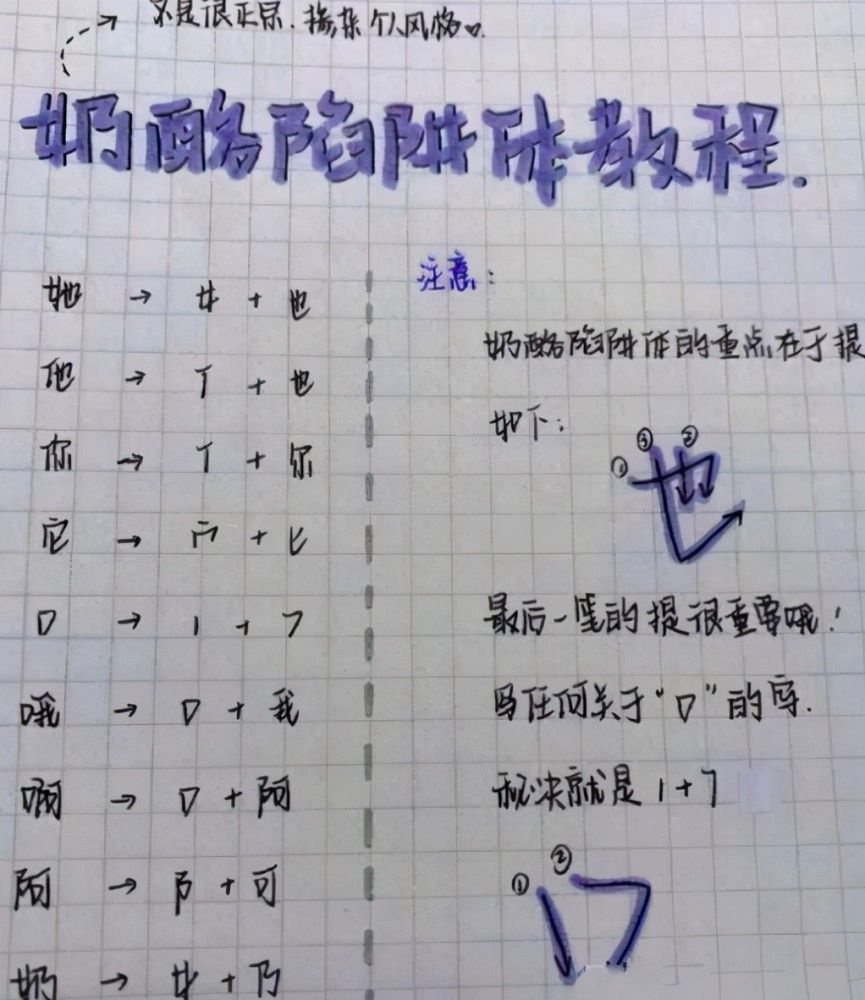 不是很正宗. 掺杂个人风格
奶酪陷阱体教程.
她 → 女 + 也
他 → 亻 + 也
你 → 亻 + 尔
它 → 宀 + 匕
口 → 1 + 7
哦 → 口 + 我
啊 → 口 + 阿
阿 → 阝 + 可
奶 → 女 + 乃
注意:
奶酪陷阱体的重点在于提
如下:
① ③ ②
也
最后一笔的提很重要哦!
写任何关于“口”的字.
秘诀就是 1+7
① ②
口